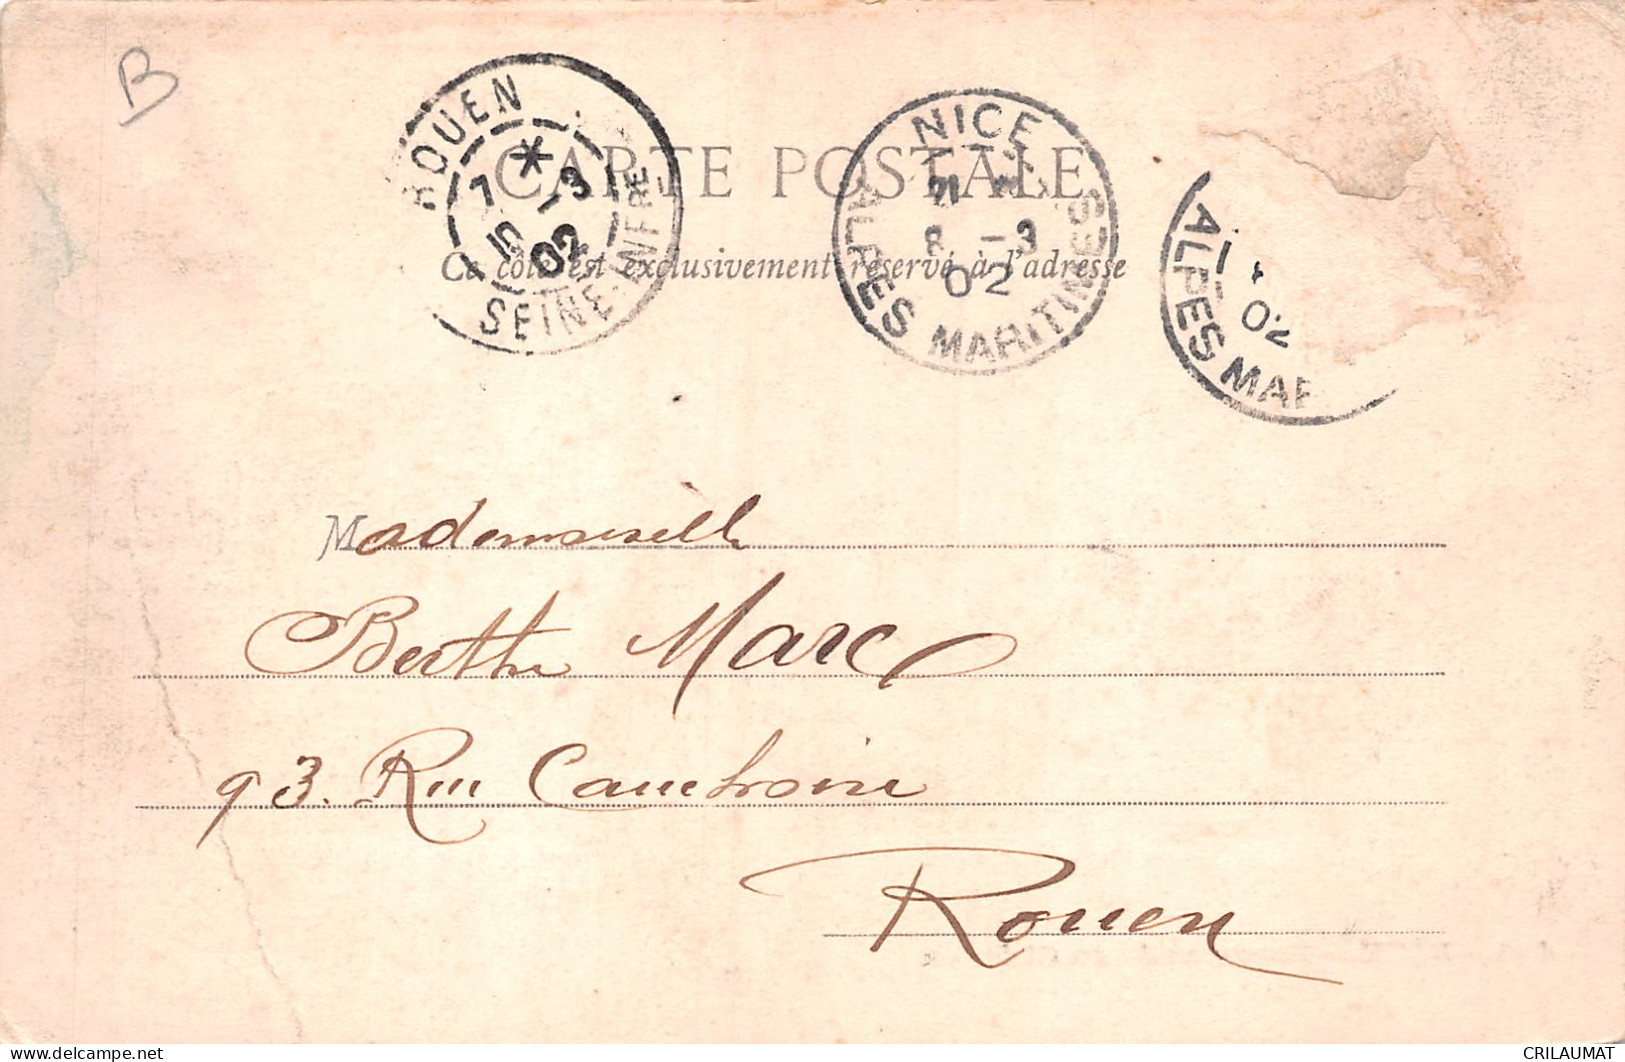 B
ROUEN
7 *
10 -3
02
SEINE-INFRE
NICE
8 -3
02
ALPES MARITIMES
02
ALPES MAR
CARTE POSTALE
Ce côté est exclusivement réservé à l'adresse
Mademoiselle
Berthe Marc
93. Rue Cauchoise
Rouen
CRILAUMAT